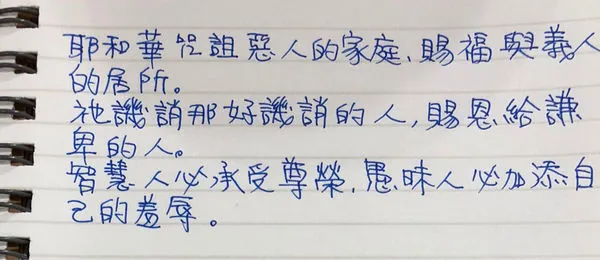 耶和華咒詛惡人的家庭,賜福與義人
的居所。
祂譏誚那好譏誚的人,賜恩給謙
卑的人。
智慧人必承受尊榮,愚昧人必加添自
己的羞辱。